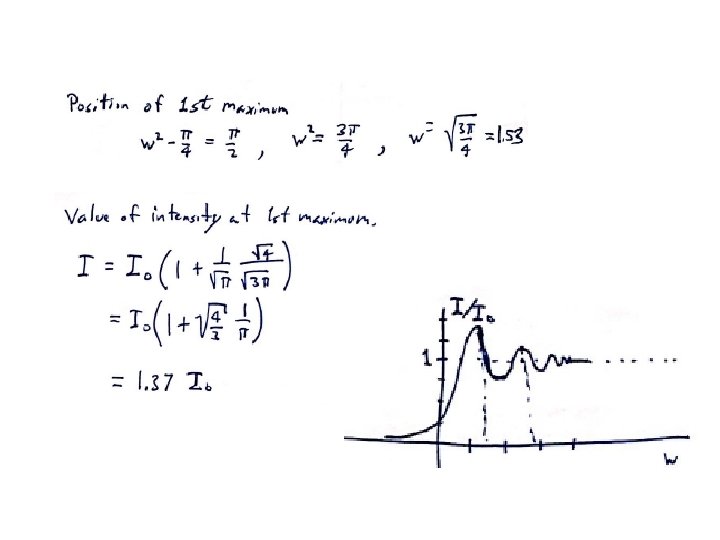 Position of 1st maximum
w² - π/4 = π/2 , w² = 3π/4 , w = √(3π/4) = 1.53
Value of intensity at 1st maximum.
I = I₀ (1 + 1/√π √4/√3π)
= I₀ (1 + √(4/3) 1/π)
= 1.37 I₀
I/I₀
1
w